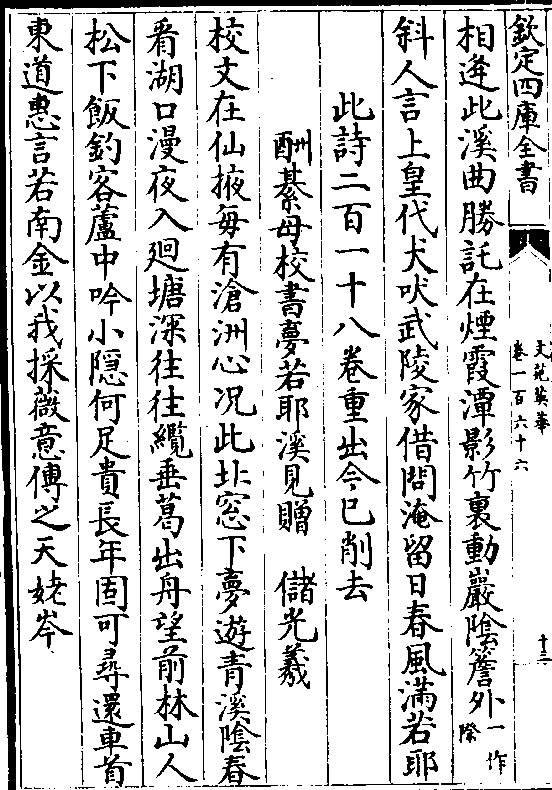 欽定四庫全書
文苑英華
卷一百六十六
十三
相逢此溪曲勝託在煙霞潭影竹裏動巖陰簷外一作際
斜人言上皇代犬吠武陵家借問淹留日春風滿若耶
此詩二百一十八卷重出今已削去
酬綦毋校書夢若耶溪見贈　儲光羲
校文在仙掖每有滄洲心况此北窓下夢遊青溪陰春
看湖口漫夜入廻塘深往往纜垂葛出舟望前林山人
松下飯釣客蘆中吟小隱何足貴長年固可尋還車首
東道惠言若南金以我採薇意傳之天姥岑